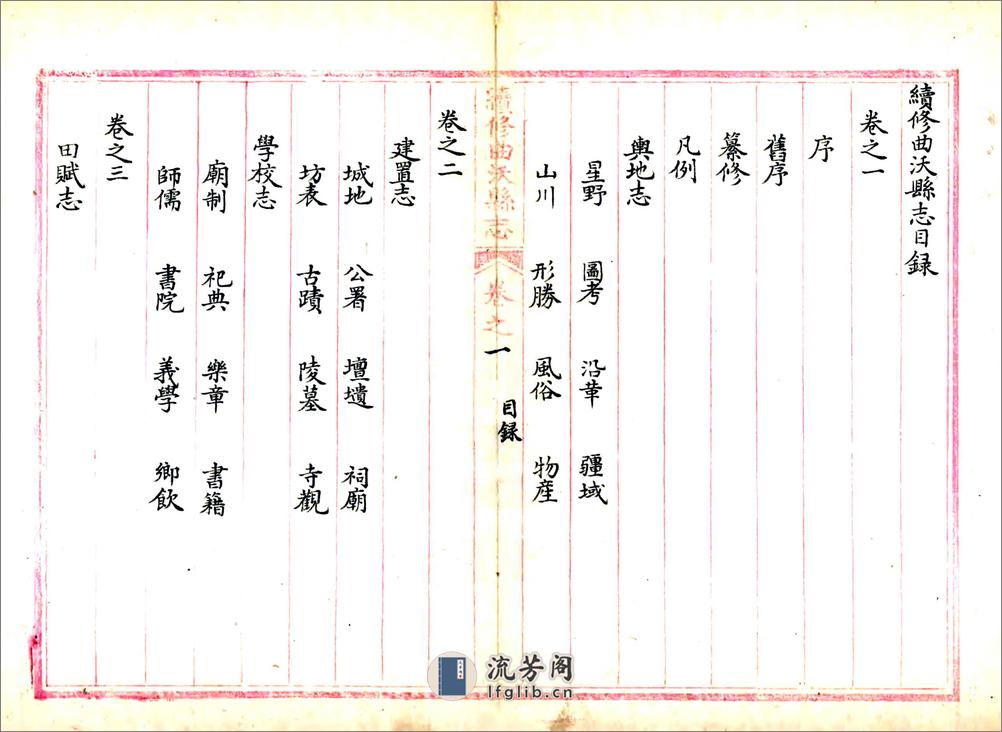 續修曲沃縣志目録
卷之一
序
舊序
纂修
凡例
輿地志
星野 圖考 沿革 疆域
山川 形勝 風俗 物產
續修曲沃縣志 卷之一 目録
卷之二
建置志
城地 公署 壇壝 祠廟
坊表 古蹟 陵墓 寺觀
學校志
廟制 祀典 樂章 書籍
師儒 書院 義學 鄉飲
卷之三
田賦志
流芳阁
lfglib.cn